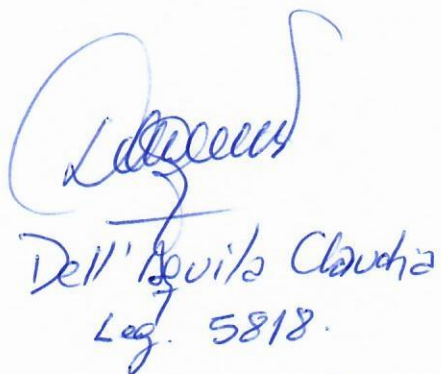 Dell'Aquila Claudia
Leg. 5818.